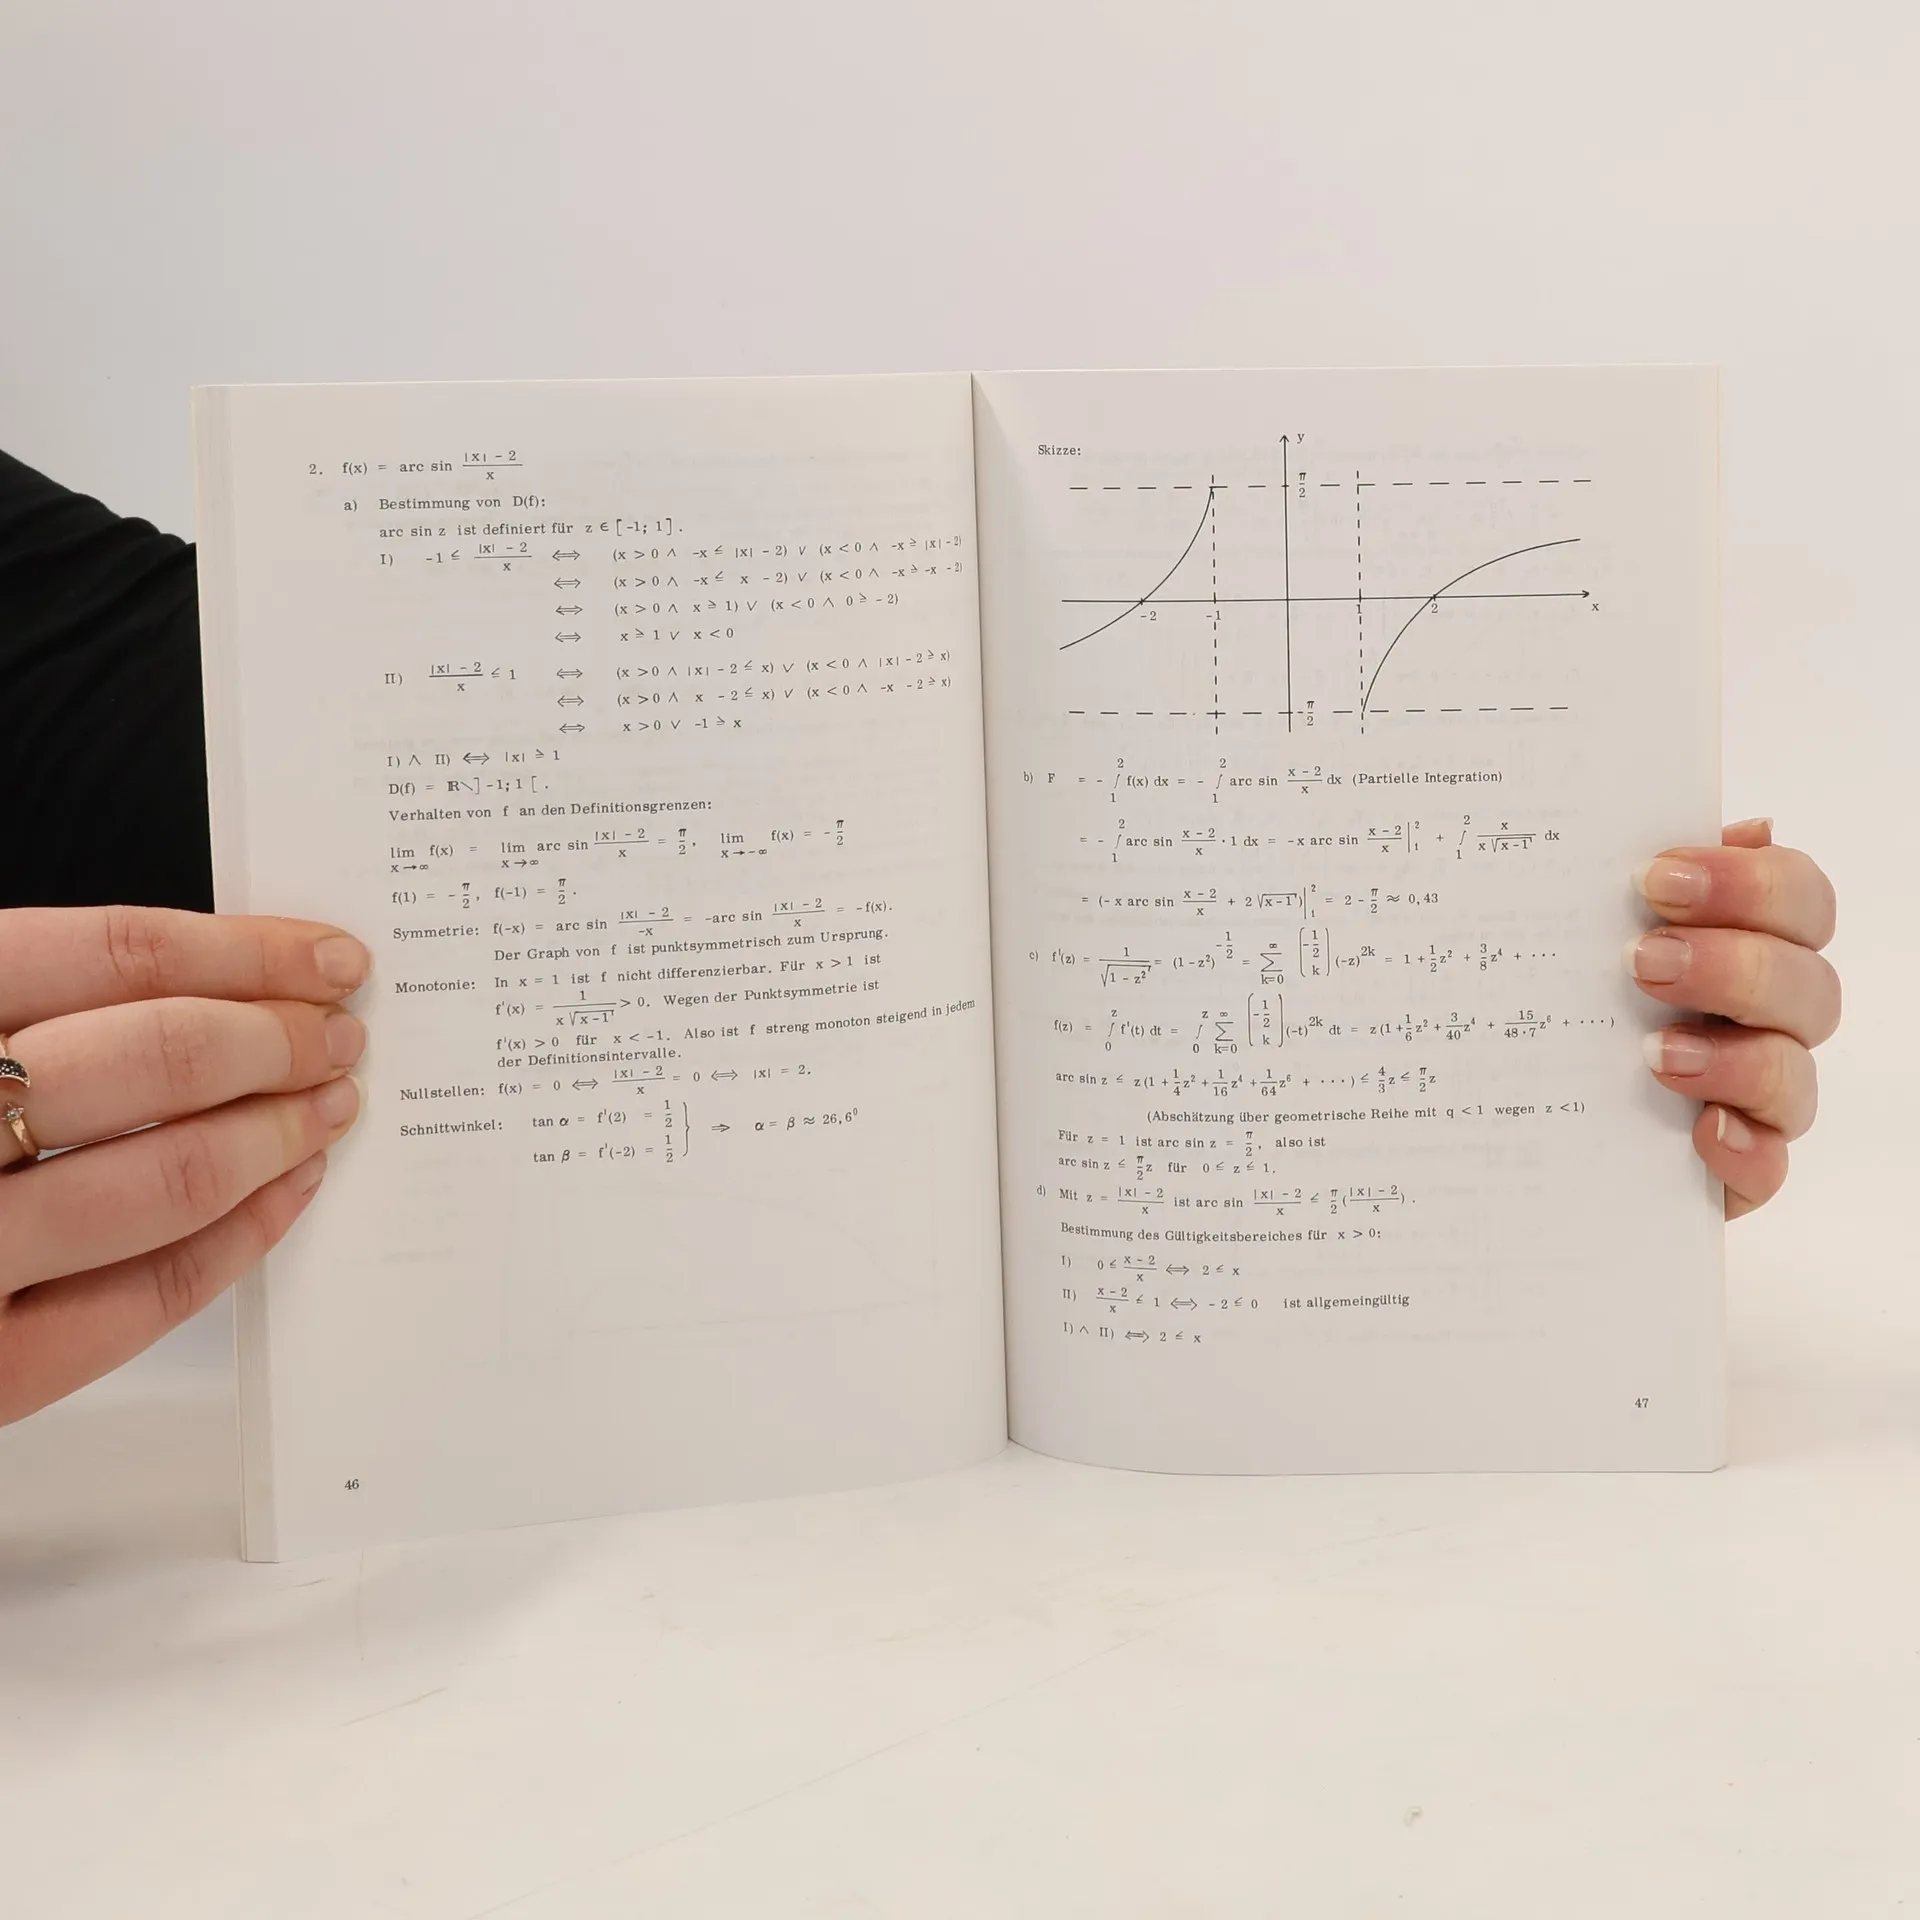 2. f(x) = arc sin (|x| - 2)/x
a) Bestimmung von D(f):
arc sin z ist definiert für z ∈ [-1; 1].
I) -1 ≤ (|x| - 2)/x ⟺ (x > 0 ∧ -x ≤ |x| - 2) ∨ (x < 0 ∧ -x ≥ |x| - 2)
⟺ (x > 0 ∧ -x ≤ x - 2) ∨ (x < 0 ∧ -x ≥ -x - 2)
⟺ (x > 0 ∧ x ≥ 1) ∨ (x < 0 ∧ 0 ≥ -2)
⟺ x ≥ 1 ∨ x < 0
II) (|x| - 2)/x ≤ 1 ⟺ (x > 0 ∧ |x| - 2 ≤ x) ∨ (x < 0 ∧ |x| - 2 ≥ x)
⟺ (x > 0 ∧ x - 2 ≤ x) ∨ (x < 0 ∧ -x - 2 ≥ x)
⟺ x > 0 ∨ -1 ≥ x
I) ∧ II) ⟺ |x| ≥ 1
D(f) = ℝ\]-1; 1[.
Verhalten von f an den Definitionsgrenzen:
lim x→∞ f(x) = lim x→∞ arc sin (|x| - 2)/x = π/2, lim x→-∞ f(x) = -π/2
f(1) = -π/2, f(-1) = π/2.
Symmetrie: f(-x) = arc sin (|x| - 2)/-x = -arc sin (|x| - 2)/x = -f(x).
Der Graph von f ist punktsymmetrisch zum Ursprung.
Monotonie: In x = 1 ist f nicht differenzierbar. Für x > 1 ist
f'(x) = 1/(x √(x-1)) > 0. Wegen der Punktsymmetrie ist
f'(x) > 0 für x < -1. Also ist f streng monoton steigend in jedem
der Definitionsintervalle.
Nullstellen: f(x) = 0 ⟺ (|x| - 2)/x = 0 ⟺ |x| = 2.
Schnittwinkel: tan α = f'(2) = 1/2
tan β = f'(-2) = 1/2 } ⇒ α = β ≈ 26,6⁰
46
Skizze:
y
π/2
-2 -1 1 2 x
-π/2
b) F = - ∫₁² f(x) dx = - ∫₁² arc sin (x - 2)/x dx (Partielle Integration)
= - ∫₁² arc sin (x - 2)/x · 1 dx = -x arc sin (x - 2)/x |₁² + ∫₁² x/(x √(x-1)) dx
= (-x arc sin (x - 2)/x + 2 √(x-1)) |₁² = 2 - π/2 ≈ 0,43
c) f'(z) = 1/√(1 - z²) = (1 - z²)^(-1/2) = ∑_{k=0}^∞ (-1/2 k) (-z)^2k = 1 + 1/2 z² + 3/8 z⁴ + ···
f(z) = ∫₀ᶻ f'(t) dt = ∫₀ᶻ ∑_{k=0}^∞ (-1/2 k) (-t)^2k dt = z (1 + 1/6 z² + 3/40 z⁴ + 15/(48·7) z⁶ + ···)
arc sin z ≤ z (1 + 1/4 z² + 1/16 z⁴ + 1/64 z⁶ + ···) ≤ 4/3 z ≤ π/2 z
(Abschätzung über geometrische Reihe mit q < 1 wegen z < 1)
Für z = 1 ist arc sin z = π/2, also ist
arc sin z ≤ π/2 z für 0 ≤ z ≤ 1.
d) Mit z = (|x| - 2)/x ist arc sin (|x| - 2)/x ≤ π/2 ((|x| - 2)/x).
Bestimmung des Gültigkeitsbereiches für x > 0:
I) 0 ≤ (x - 2)/x ⟺ 2 ≤ x
II) (x - 2)/x ≤ 1 ⟺ -2 ≤ 0 ist allgemeingültig
I) ∧ II) ⟺ 2 ≤ x
47